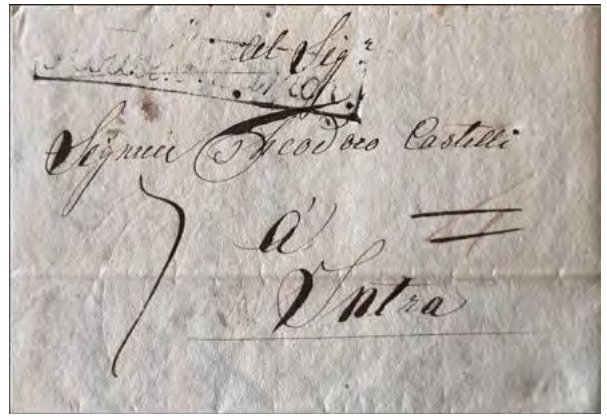 al Sig.r
Signore Theodoro Castelli
à
Intra